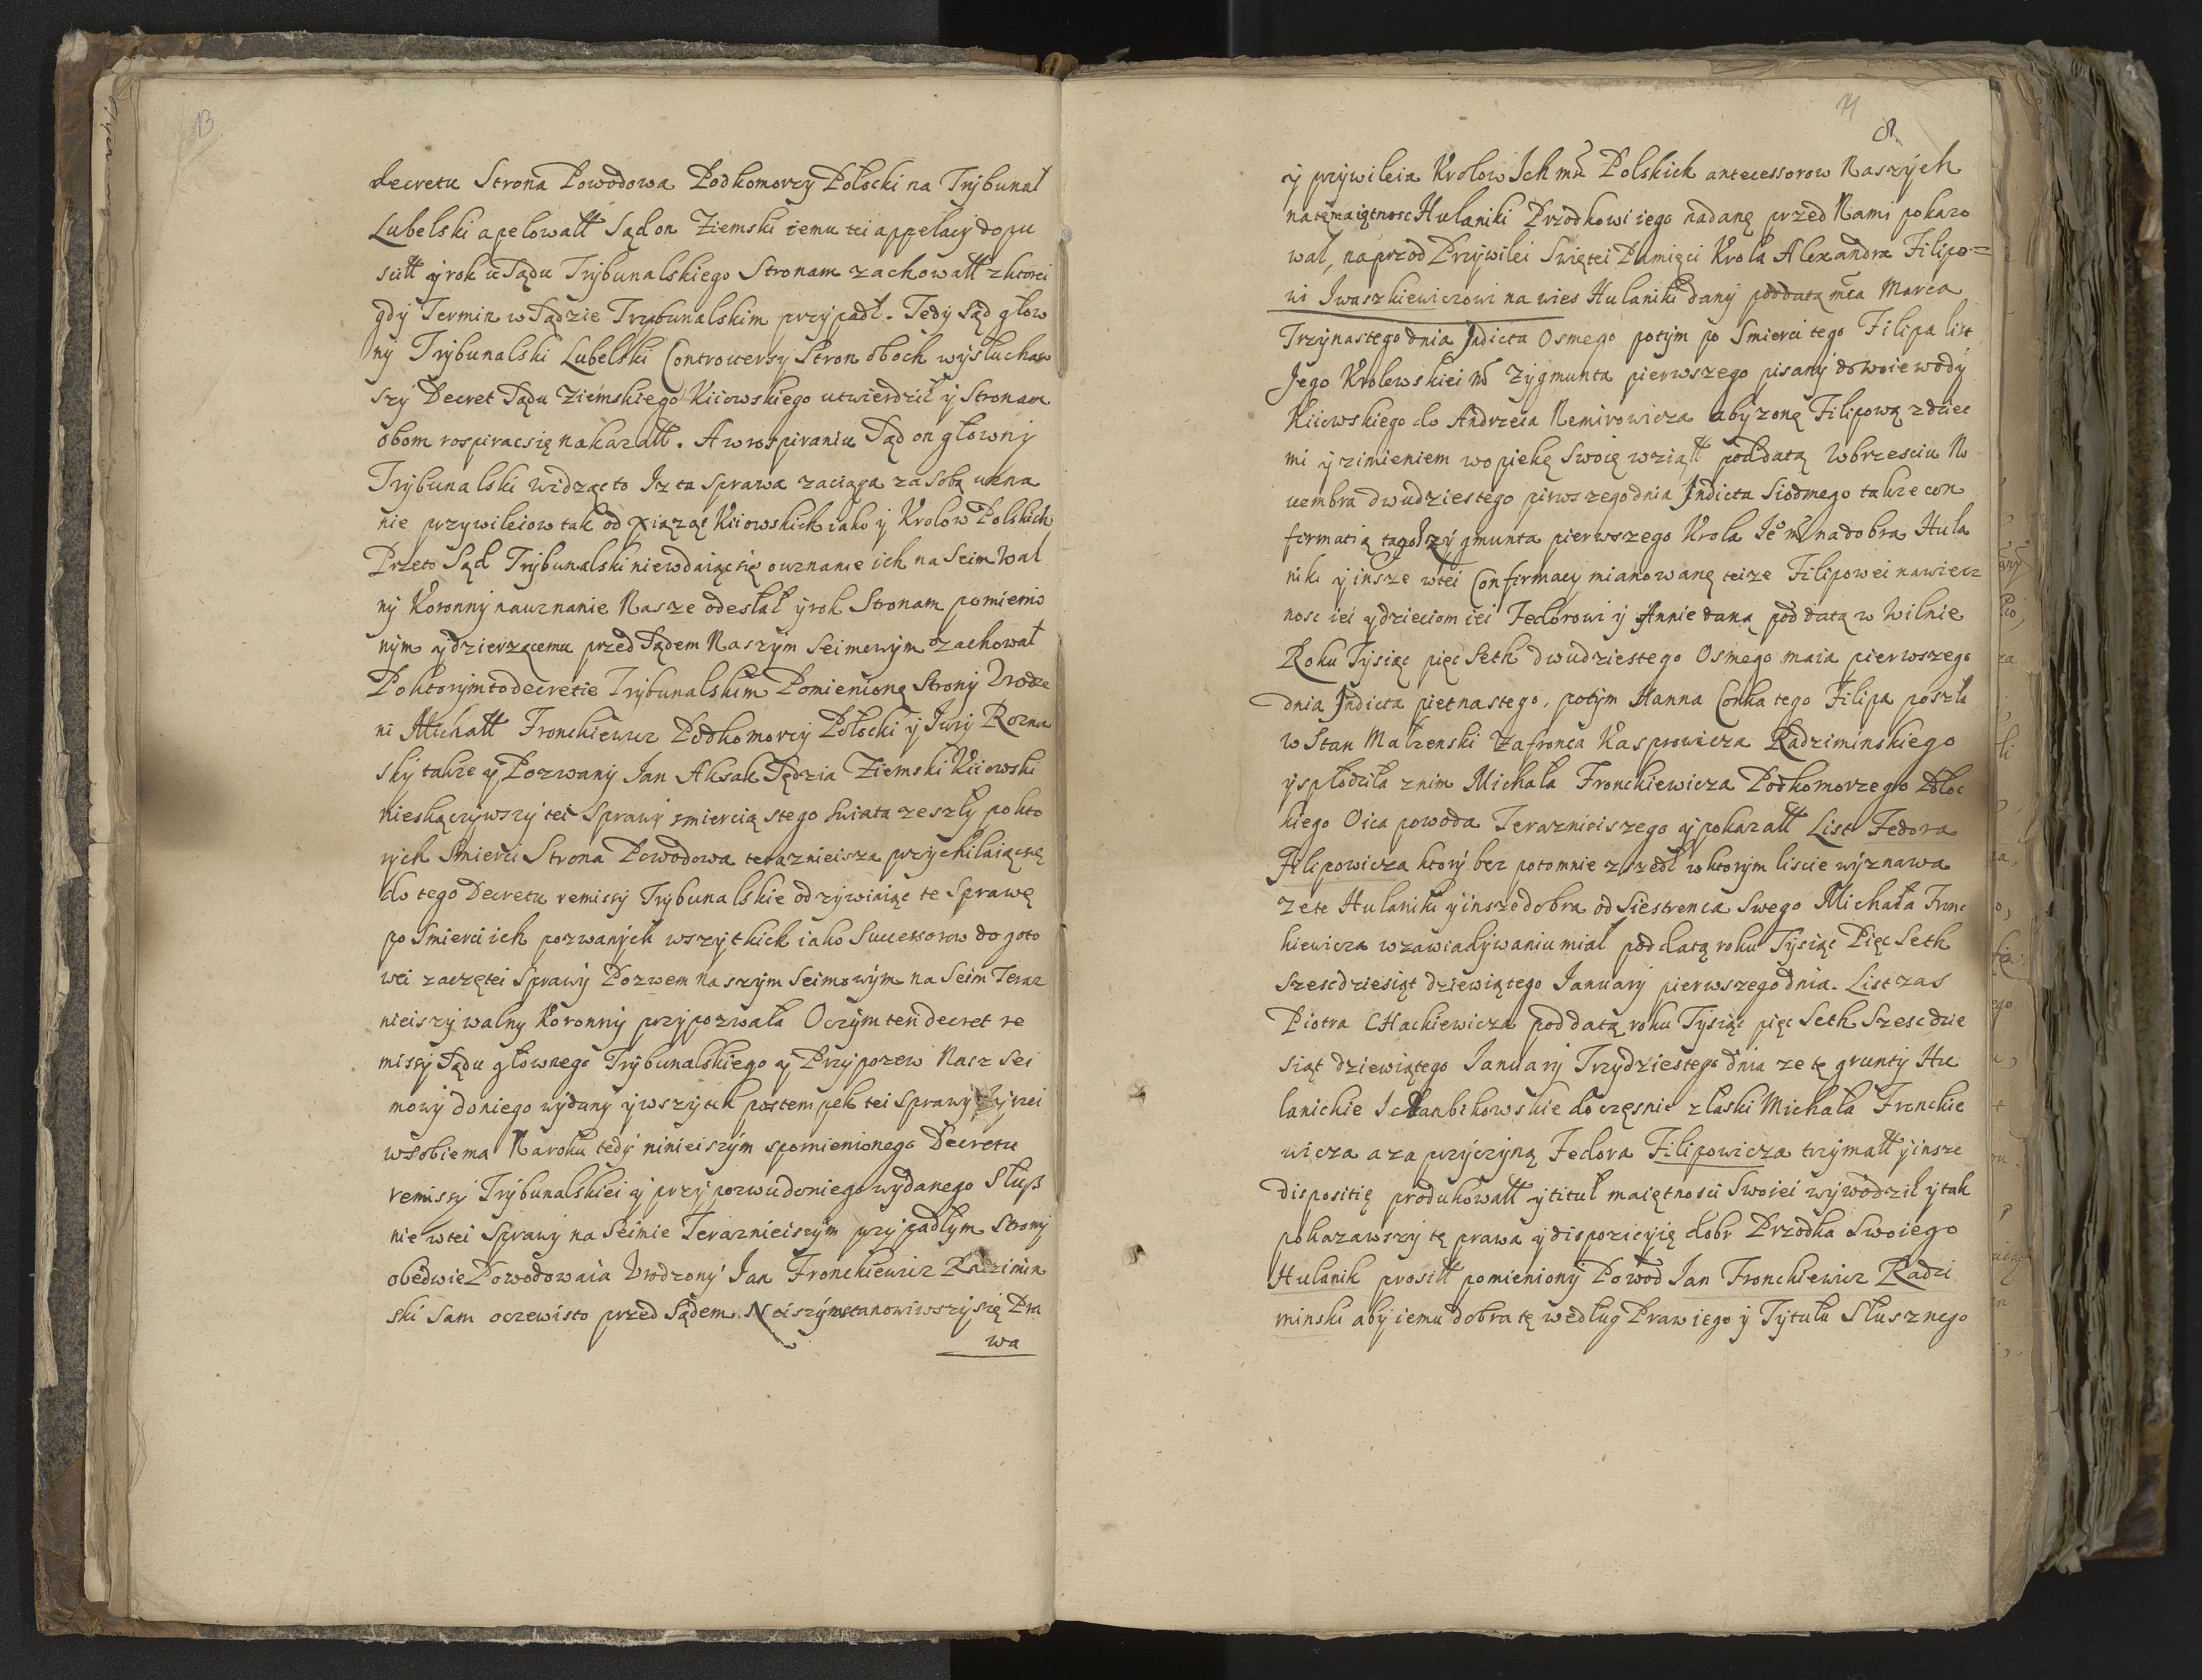 13
decretu Strona Powodowa Podkomorzy Połocki na Trybunał
Lubelski apelowałł Sąd on Ziemski iemu tei appelacÿ dopu
sciłł ÿ rok u Sądu Trÿbunalskiego Stronam zachowałł z ktorei
gdÿ Termin w Sądzie Trybunalskim przÿpadł. Tedÿ Sąd głow
nÿ Trÿbunalski Lubelski Controwersÿ Stron oboch wÿsłuchaw
szÿ Decret Sądu Ziemskiego Kiiowskiego utwierdził ÿ Stronam
obom rospieracsię nakazałł. A w rospieraniu Sąd on głownÿ
Trÿbunalski widząc to Iz ta Sprawa zaciąga za sobą uzna
nie przywileiow tak od Xiąząt Kiiowskich iako ÿ Krolow Polskich
Przeto Sąd Trÿbunalski niewdaiąc się o uznanie ich na Seim Wal
nÿ Koronnÿ na uznanie Nasze odesłał ÿ rok Stronam pomienio
nÿm ÿ dzierzącemu przed Sądem Naszÿm Seimowÿm zachował
Po ktorÿm to decretie Trÿbunalskim Pomienionę Stronÿ Urodze
ni Michałł Fronckiewicz Podkomorzÿ Połocki ÿ Jurÿ Rozno
skÿ takze ÿ Pozwanÿ Jan Aksak Sędzia Ziemski Kiiowski
nieskączÿwszÿ tei Sprawÿ smiercią s tego swiata zeszłÿ po kto
rÿch Smierci Strona Powodowa teraznieisza przÿchilaiąc się
do tego Decretu remissÿ Trÿbunalskie odzÿwiaiąc te Sprawę
po Smierci ich pozwanÿch wszÿtkich iako Successorow do goto
wei zaczętei Sprawÿ Pozwem naszÿm Seimowÿm na Seim Teraz
nieiszÿ walny Koronnÿ przÿpozwała O czÿm ten decret re
missÿ Sądu głownego Trÿbunalskiego ÿ Przÿpozew Nasz Sei
mowÿ do niego wÿdany ÿ wszÿtek postempek tei Sprawÿ szÿrzei
w sobie ma Na roku tedÿ ninieiszÿm spomienionego Decretu
remissÿ Trÿbunalskiei ÿ przÿpozwu do niego wÿdanego Słusz
nie w tei Sprawÿ na Seimie Teraznieiszÿm przÿpadłÿm Stronÿ
obedwie Powodowaia Urodzonÿ Jan Fronckiewicz Radzimin
ski Sam oczewisto przed Sądem Neiszÿm stanowiwszÿ się Pra
wa
8
ÿ przÿwileia Krolow Ich mć Polskich antecessorow Naszÿch
na tę maiętnosc Hulaniki Przodkowi iego nadanę przed Nami pokazo
wał, naprzod Przÿwilei Swiętei Pamięci Krola Alexandra Filipo=
wi Iwaszkiewiczowi na wies Hulaniki danÿ pod datą mca Marca
Trzÿnastego dnia Indicta Osmego potÿm po Smierci tego Filipa list
Jego Krolewskiei M Zÿgmunta pierwszego pisanÿ do Woiewodÿ
Kiiowskiego do Andrzeia Nemirowicza abÿ zonę Filipową z dziec
mi ÿ z imieniem w opiekę Swoię wziąłł pod datą w brzesciu No
uembra dwudziestego pirwszego dnia Indicta Siodmego takze con
firmatią tagoz Zÿgmunta pierwszego Krola Je M na dobra Hula
niki ÿ insze w tei Confirmacÿ mianowanę teize Filipowei na wiecz
nosc iei ÿ dzieciom iei Fedorowi ÿ Annie daną pod datą w Wilnie
Roku Tÿsiąc pięc Seth dwudziestego Osmego maia pierwszego
dnia Indicta pietnastego, potÿm Hanna Corka tego Filipa poszła
w Stan Malzenski za fronca Kasprowicza Radziminskiego
ÿ spłodziła z nim Michała Fronckiewicza Podkomorzego Połoc
kiego Oica powoda Teraznieiszego ÿ pokazałł List Fedora
Filipowicza ktorÿ bez potomnie zszedł w ktorÿm liscie wÿznawa
ze te Hulaniki ÿ insze dobra od Siestrenca Swego Michała Fronc
kiewicza w zawiadÿwaniu miał pod datą roku Tÿsiąc Pięc Seth
Szescdziesiąt dziewiątego Januarÿ pierwszego dnia. List zas
Piotra CHackiewicza pod datą roku Tÿsiąc pięc Seth Szescdzie
siąt dziewiątego Januarÿ Trzÿdziestego dnia ze tę gruntÿ Hu
lanickie do częsnie z łaski Michała Fronckie
wicza a za przÿczÿną Fedora Filipowicza trzÿmałł ÿ insze
dispositię produkowałł ÿ titul maiętnosci Swoiei wÿwodził ÿ tak
pokazawszÿ tę prawa ÿ dispozicÿię dobr Przodka Swoiego
Hulanik prosiłł pomienionÿ Powod Jan Fronckiewicz Radzi
minski abÿ iemu dobra tę według Praw iego ÿ Tÿtułu Słusznego